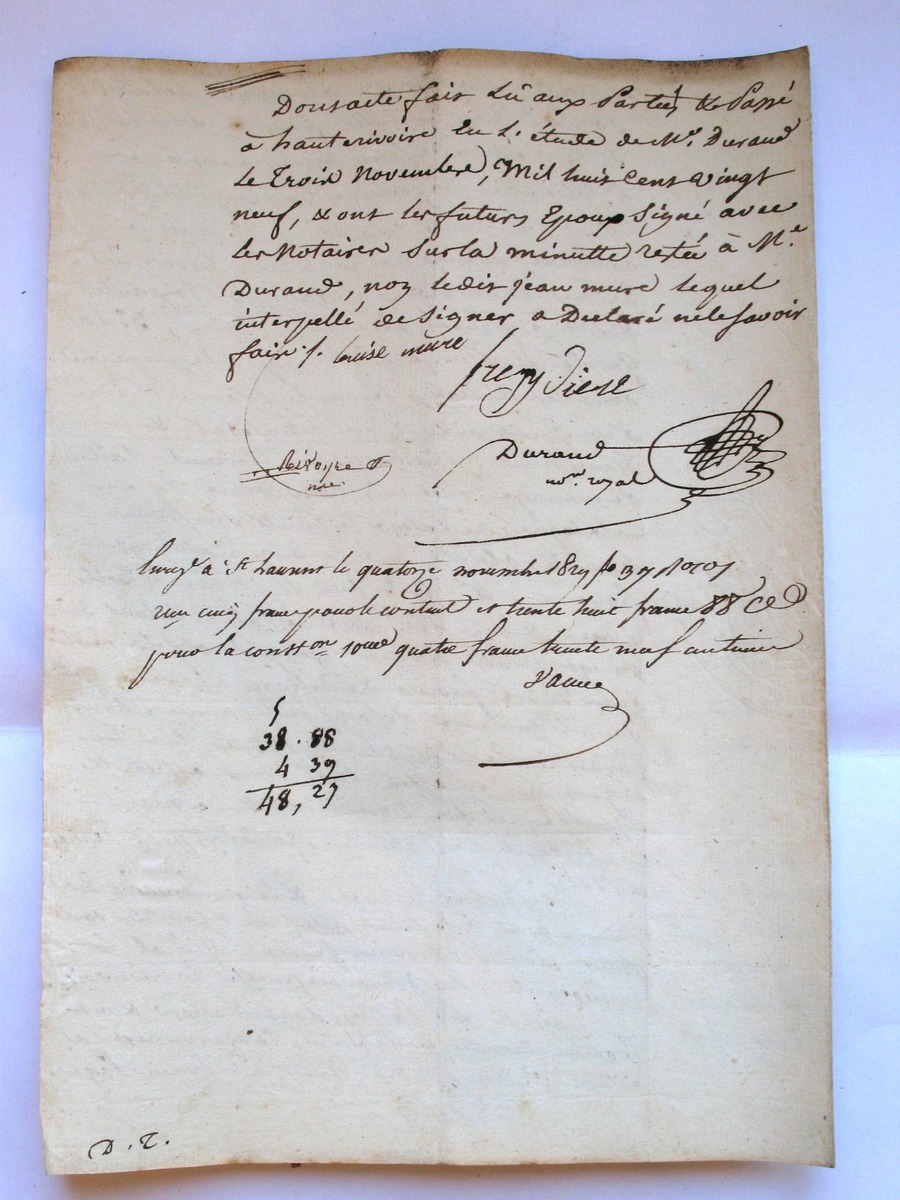 Dont acte fait Lû aux Parties & Passé
à hauterivoire En L'étude de Me. Durand
Le Trois Novembre, Mil huit Cent Vingt
neuf, & ont les futurs Epoux Signé avec
les Notaires Sur la minutte restée à Me
Durand, non ledit jean mure lequel
interpellé de Signer a Declaré ne le Savoir
faire ./. louise mure
Durand
nore. royal
à St Laurent le quatorze novembre 1829 fo 39
cinq francs pour le contrat et trente huit francs 88 Ces
pour la conston 10me quatre francs trente neuf centimes
5
38 . 88
4 39
48, 27
D. T.